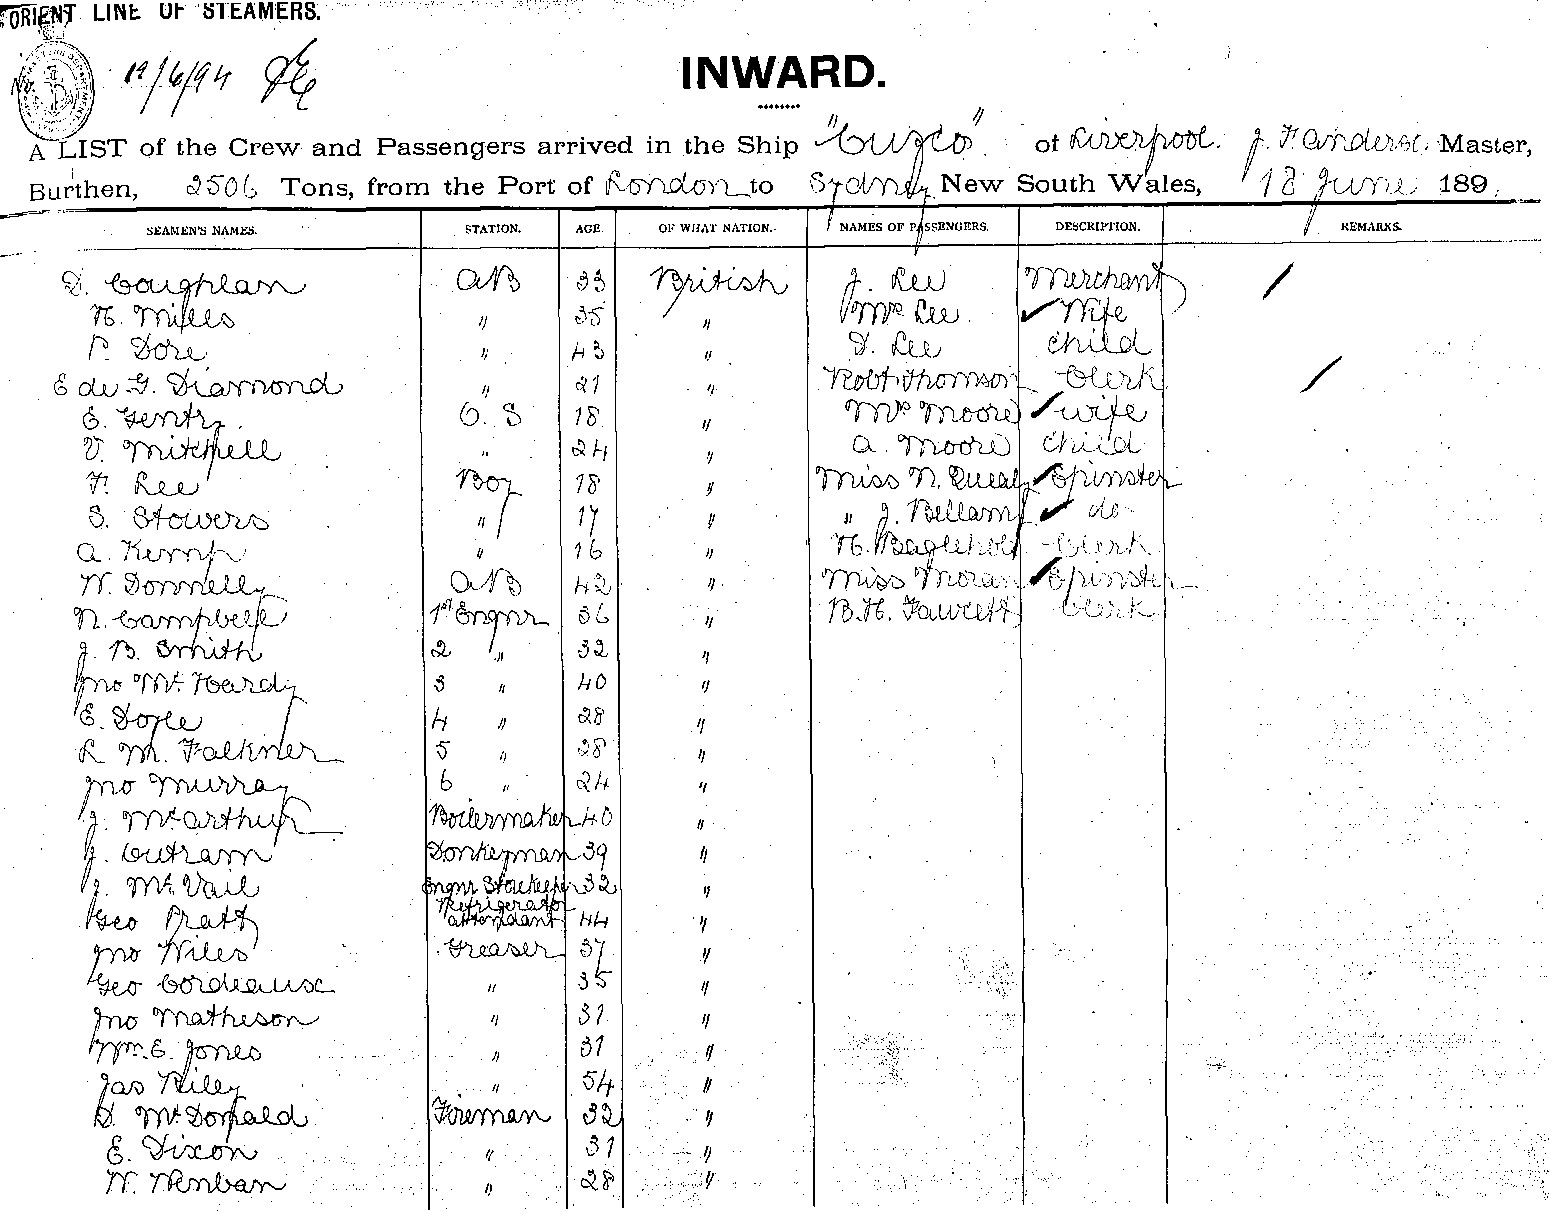 ORIENT LINE OF STEAMERS.
No. 19/6/94
INWARD.
A LIST of the Crew and Passengers arrived in the Ship "Cuzco" of Liverpool. J. F. Anderson Master,
Burthen, 2506 Tons, from the Port of London to Sydney New South Wales, 18 June 189
SEAMEN'S NAMES. STATION. AGE. OF WHAT NATION. NAMES OF PASSENGERS. DESCRIPTION. REMARKS.
D. Coughlan AB 33 British J. Lee Merchant /
H. Mills " 35 " Mrs Lee. ✓ Wife
P. Dore " 43 " D. Lee Child
E de G. Diamond " 21 " Robt Thomson Clerk /
E. Gentry. O. S 18 " Mrs Moore ✓ wife
V. Mitchell " 24 " A. Moore Child
F. Lee Boy 18 " Miss N. Quealy ✓ Spinster
S. Stowers " 17 " " J. Bellamy ✓ do
A. Kemp " 16 " H. Baglehole Clerk
W. Donnelly AB 42 " Miss Moran ✓ Spinster
N. Campbell 1st Engnr 36 " B. H. Fawcett Clerk
J. B. Smith 2 " 32 "
Jno McHardy 3 " 40 "
E. Doyle 4 " 28 "
R. M. Falkner 5 " 28 "
Jno Murray 6 " 24 "
J. McArthur Boilermaker 40 "
J. Outram Donkeyman 39 "
J. McVail Engnr Storekeeper 32 "
Geo Pratt Refrigerator attendant 44 "
Jno Wiles Greaser 37 "
Geo Cordeause " 35 "
Jno Matheson " 31 "
Wm. E. Jones " 31 "
Jas Riley " 54 "
D. McDonald Fireman 32 "
E. Dixon " 31 "
W. Wenban " 28 "